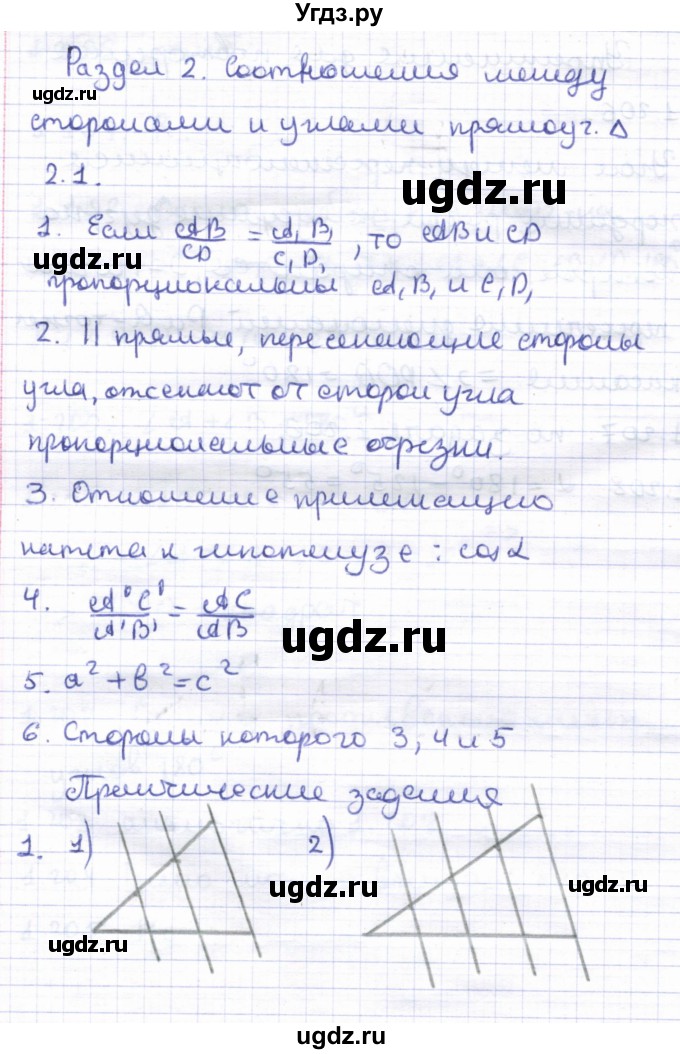 Угдз.ру
Раздел 2. Соотношения между
ugdz.ru
сторонами и углами прямоуг. Δ
2.1.
ugdz.ru
1. Если AB/CD = A₁B₁/C₁D₁, то AB и CD
ugdz.ru
пропорциональны A₁B₁ и C₁D₁
2. || прямые, пересекающие стороны
угла, отсекают от сторон угла
пропорциональные отрезки.
3. Отношение прилежащего
катета к гипотенузе : cos α
4. A'C'/A'B' = AC/AB
ugdz.ru
5. a² + b² = c²
6. Стороны которого 3, 4 и 5
Практические задания
1. 1) 2)
ugdz.ru
ugdz.ru
ugdz.ru
ugdz.ru